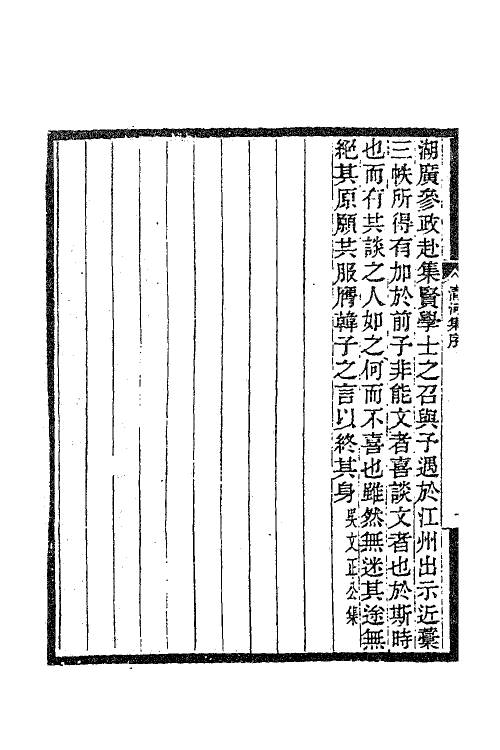 湖廣參政赴集賢學士之召與子遇於江州出示近槀
三帙所得有加於前子非能文者喜談文者也於斯時
也而有共談之人如之何而不喜也雖然無迷其途無
絕其原願共服膺韓子之言以終其身吳文正公集
清河集序